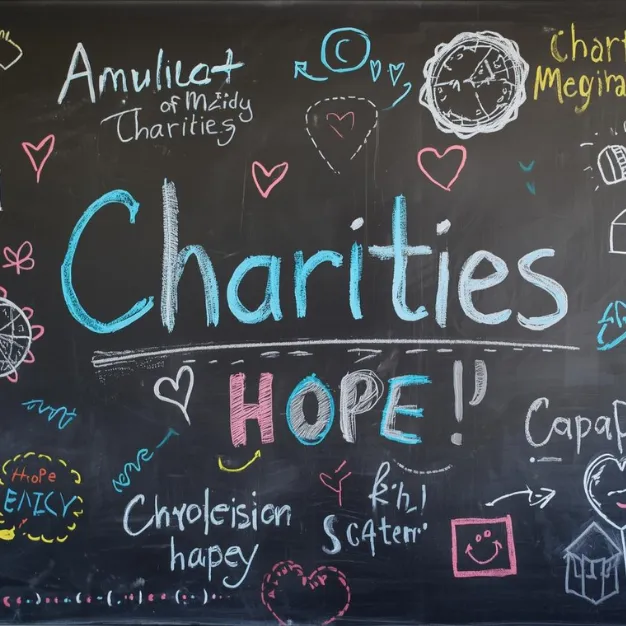 Amulicat
of Mzidy
Tharities
©
Chart
Megira
Charities
HOPE!
Capap
Hope
ENICY
nerve
Chroleision
hapey
Scatern